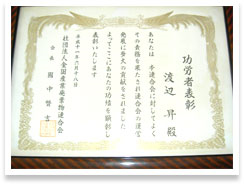 功労者表彰
渡辺 昇 殿
あなたは 本連合会に対してよく
その責務を尽され連合会の運営
発展に多大の貢献をされました
よってここにあなたの功績を顕彰し
表彰いたします
平成十一年六月十八日
社団法人全国産業廃棄物連合会
会長 國中賢吉